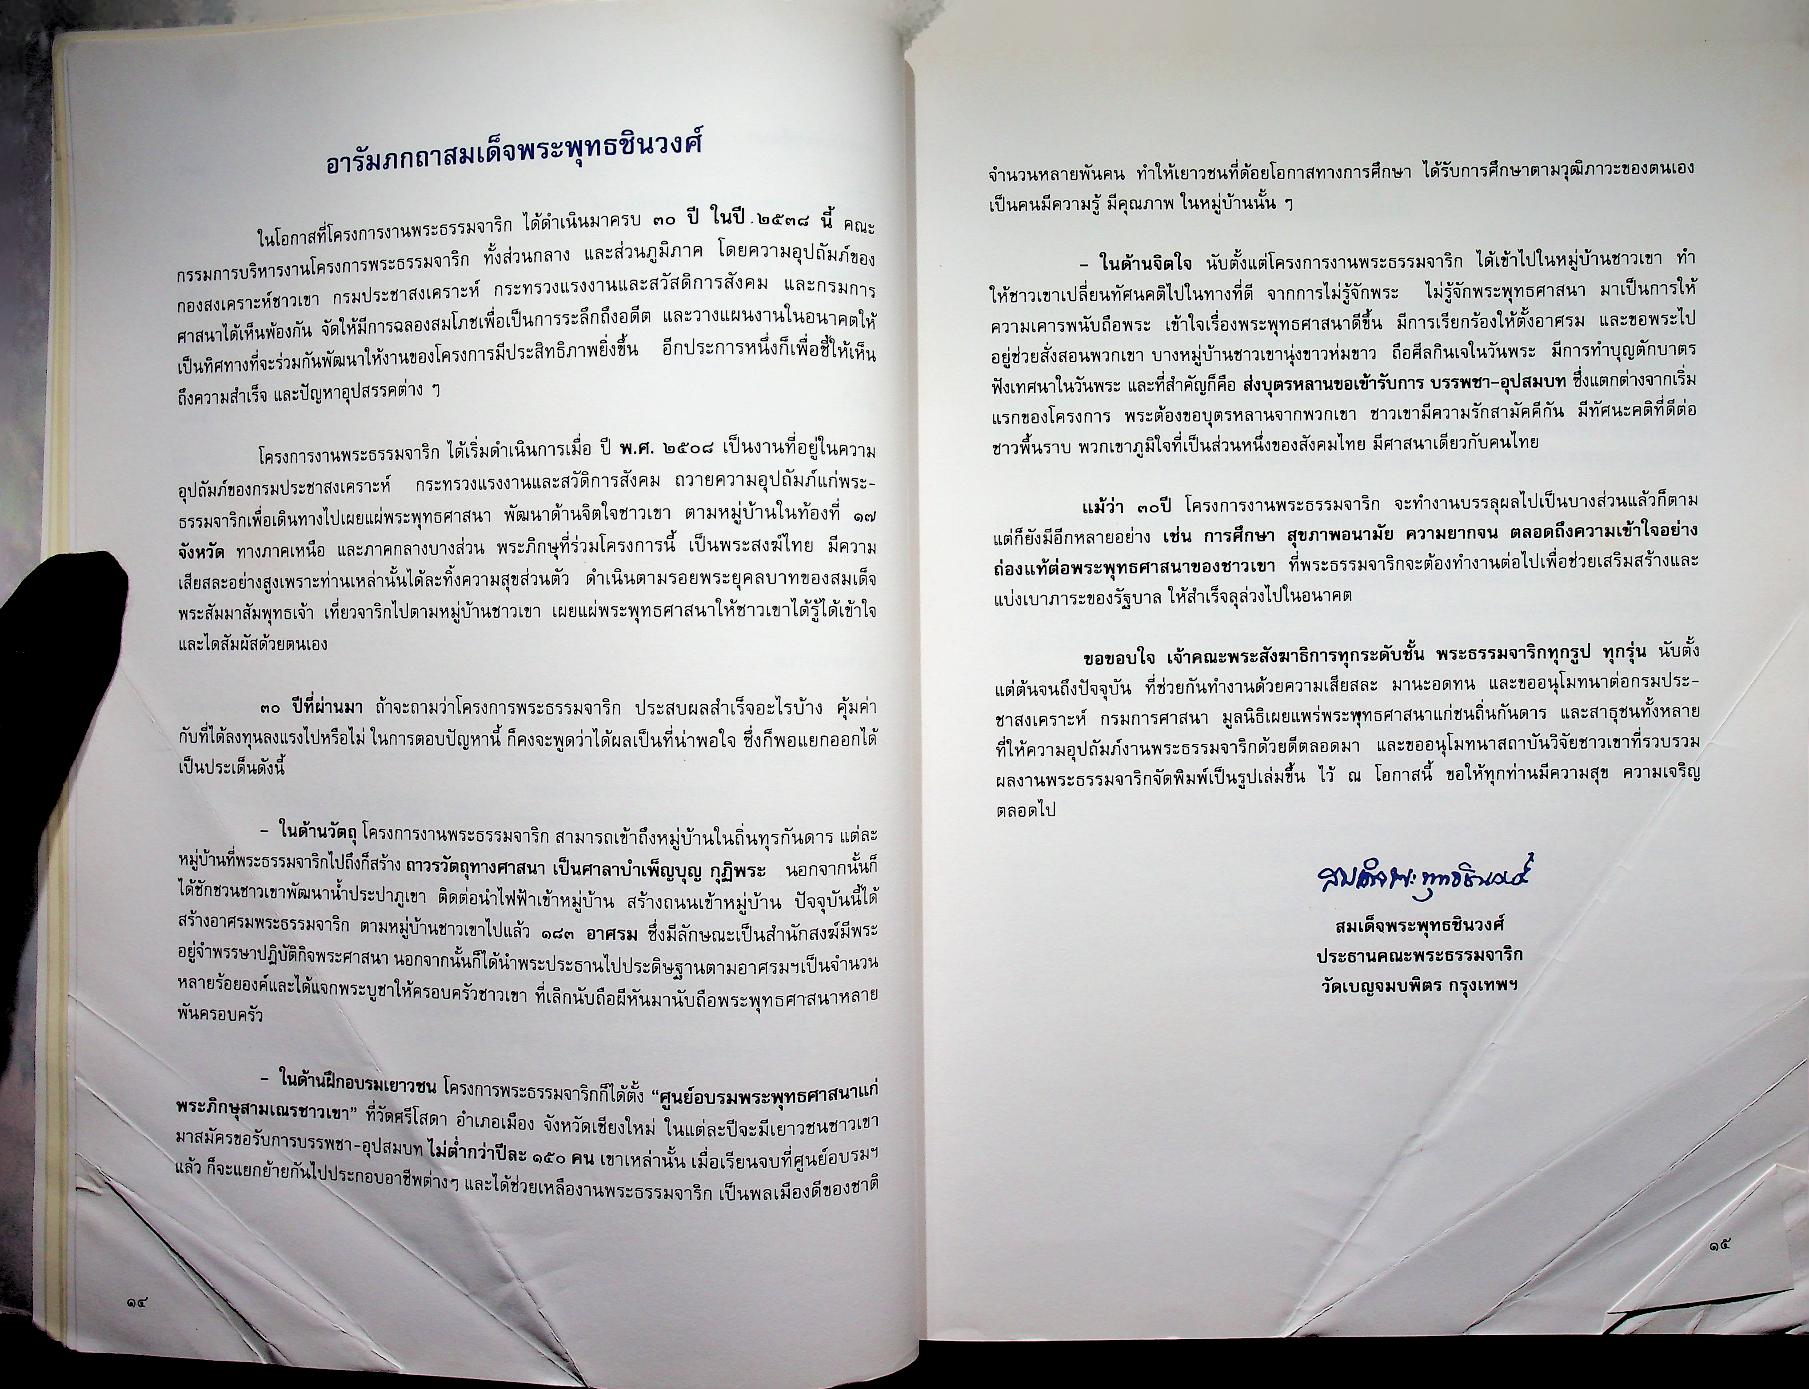 อารัมภกถาสมเด็จพระพุทธชินวงศ์
ในโอกาสที่โครงการงานพระธรรมจาริก ได้ดำเนินมาครบ ๓๐ ปี ในปี .๒๕๓๘ นี้ คณะ
กรรมการบริหารงานโครงการพระธรรมจาริก ทั้งส่วนกลาง และส่วนภูมิภาค โดยความอุปถัมภ์ของ
กองสงเคราะห์ชาวเขา กรมประชาสงเคราะห์ กระทรวงแรงงานและสวัสดิการสังคม และกรมการ
ศาสนาได้เห็นพ้องกัน จัดให้มีการฉลองสมโภชเพื่อเป็นการระลึกถึงอดีต และวางแผนงานในอนาคตให้
เป็นทิศทางที่จะร่วมกันพัฒนาให้งานของโครงการมีประสิทธิภาพยิ่งขึ้น อีกประการหนึ่งก็เพื่อชี้ให้เห็น
ถึงความสำเร็จ และปัญหาอุปสรรคต่าง ๆ
โครงการงานพระธรรมจาริก ได้เริ่มดำเนินการเมื่อ ปี พ.ศ. ๒๕๐๘ เป็นงานที่อยู่ในความ
อุปถัมภ์ของกรมประชาสงเคราะห์ กระทรวงแรงงานและสวัดิการสังคม ถวายความอุปถัมภ์แก่พระ-
ธรรมจาริกเพื่อเดินทางไปเผยแผ่พระพุทธศาสนา พัฒนาด้านจิตใจชาวเขา ตามหมู่บ้านในท้องที่ ๑๗
จังหวัด ทางภาคเหนือ และภาคกลางบางส่วน พระภิกษุที่ร่วมโครงการนี้ เป็นพระสงฆ์ไทย มีความ
เสียสละอย่างสูงเพราะท่านเหล่านั้นได้ละทิ้งความสุขส่วนตัว ดำเนินตามรอยพระยุคลบาทของสมเด็จ
พระสัมมาสัมพุทธเจ้า เที่ยวจาริกไปตามหมู่บ้านชาวเขา เผยแผ่พระพุทธศาสนาให้ชาวเขาได้รู้ได้เข้าใจ
และไดสัมผัสด้วยตนเอง
๓๐ ปีที่ผ่านมา ถ้าจะถามว่าโครงการพระธรรมจาริก ประสบผลสำเร็จอะไรบ้าง คุ้มค่า
กับที่ได้ลงทุนลงแรงไปหรือไม่ ในการตอบปัญหานี้ ก็คงจะพูดว่าได้ผลเป็นที่น่าพอใจ ซึ่งก็พอแยกออกได้
เป็นประเด็นดังนี้
- ในด้านวัตถุ โครงการงานพระธรรมจาริก สามารถเข้าถึงหมู่บ้านในถิ่นทุรกันดาร แต่ละ
หมู่บ้านที่พระธรรมจาริกไปถึงก็สร้าง ถาวรวัตถุทางศาสนา เป็นศาลาบำเพ็ญบุญ กุฏิพระ นอกจากนั้นก็
ได้ชักชวนชาวเขาพัฒนาน้ำประปาภูเขา ติดต่อนำไฟฟ้าเข้าหมู่บ้าน สร้างถนนเข้าหมู่บ้าน ปัจจุบันนี้ได้
สร้างอาศรมพระธรรมจาริก ตามหมู่บ้านชาวเขาไปแล้ว ๑๘๓ อาศรม ซึ่งมีลักษณะเป็นสำนักสงฆ์มีพระ
อยู่จำพรรษาปฏิบัติกิจพระศาสนา นอกจากนั้นก็ได้นำพระประธานไปประดิษฐานตามอาศรมฯเป็นจำนวน
หลายร้อยองค์และได้แจกพระบูชาให้ครอบครัวชาวเขา ที่เลิกนับถือผีหันมานับถือพระพุทธศาสนาหลาย
พันครอบครัว
- ในด้านฝึกอบรมเยาวชน โครงการพระธรรมจาริกก็ได้ตั้ง “ศูนย์อบรมพระพุทธศาสนาแก่
พระภิกษุสามเณรชาวเขา” ที่วัดศรีโสดา อำเภอเมือง จังหวัดเชียงใหม่ ในแต่ละปีจะมีเยาวชนชาวเขา
มาสมัครขอรับการบรรพชา-อุปสมบท ไม่ต่ำกว่าปีละ ๑๕๐ คน เขาเหล่านั้น เมื่อเรียนจบที่ศูนย์อบรมฯ
แล้ว ก็จะแยกย้ายกันไปประกอบอาชีพต่างๆ และได้ช่วยเหลืองานพระธรรมจาริก เป็นพลเมืองดีของชาติ
๑๔
จำนวนหลายพันคน ทำให้เยาวชนที่ด้อยโอกาสทางการศึกษา ได้รับการศึกษาตามวุฒิภาวะของตนเอง
เป็นคนมีความรู้ มีคุณภาพ ในหมู่บ้านนั้น ๆ
- ในด้านจิตใจ นับตั้งแต่โครงการงานพระธรรมจาริก ได้เข้าไปในหมู่บ้านชาวเขา ทำ
ให้ชาวเขาเปลี่ยนทัศนคติไปในทางที่ดี จากการไม่รู้จักพระ ไม่รู้จักพระพุทธศาสนา มาเป็นการให้
ความเคารพนับถือพระ เข้าใจเรื่องพระพุทธศาสนาดีขึ้น มีการเรียกร้องให้ตั้งอาศรม และขอพระไป
อยู่ช่วยสั่งสอนพวกเขา บางหมู่บ้านชาวเขานุ่งขาวห่มขาว ถือศีลกินเจในวันพระ มีการทำบุญตักบาตร
ฟังเทศนาในวันพระ และที่สำคัญก็คือ ส่งบุตรหลานขอเข้ารับการ บรรพชา-อุปสมบท ซึ่งแตกต่างจากเริ่ม
แรกของโครงการ พระต้องขอบุตรหลานจากพวกเขา ชาวเขามีความรักสามัคคีกัน มีทัศนะคติที่ดีต่อ
ชาวพื้นราบ พวกเขาภูมิใจที่เป็นส่วนหนึ่งของสังคมไทย มีศาสนาเดียวกับคนไทย
แม้ว่า ๓๐ปี โครงการงานพระธรรมจาริก จะทำงานบรรลุผลไปเป็นบางส่วนแล้วก็ตาม
แต่ก็ยังมีอีกหลายอย่าง เช่น การศึกษา สุขภาพอนามัย ความยากจน ตลอดถึงความเข้าใจอย่าง
ถ่องแท้ต่อพระพุทธศาสนาของชาวเขา ที่พระธรรมจาริกจะต้องทำงานต่อไปเพื่อช่วยเสริมสร้างและ
แบ่งเบาภาระของรัฐบาล ให้สำเร็จลุล่วงไปในอนาคต
ขอขอบใจ เจ้าคณะพระสังฆาธิการทุกระดับชั้น พระธรรมจาริกทุกรูป ทุกรุ่น นับตั้ง
แต่ต้นจนถึงปัจจุบัน ที่ช่วยกันทำงานด้วยความเสียสละ มานะอดทน และขออนุโมทนาต่อกรมประ-
ชาสงเคราะห์ กรมการศาสนา มูลนิธิเผยแพร่พระพุทธศาสนาแก่ชนถิ่นกันดาร และสาธุชนทั้งหลาย
ที่ให้ความอุปถัมภ์งานพระธรรมจาริกด้วยดีตลอดมา และขออนุโมทนาสถาบันวิจัยชาวเขาที่รวบรวม
ผลงานพระธรรมจาริกจัดพิมพ์เป็นรูปเล่มขึ้น ไว้ ณ โอกาสนี้ ขอให้ทุกท่านมีความสุข ความเจริญ
ตลอดไป
สมเด็จพระพุทธชินวงศ์
สมเด็จพระพุทธชินวงศ์
ประธานคณะพระธรรมจาริก
วัดเบญจมบพิตร กรุงเทพฯ
๑๕